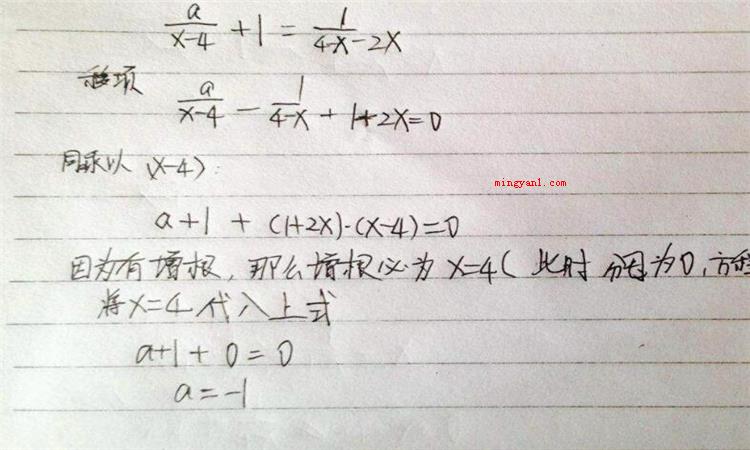 a/(x-4) + 1 = 1/(4-x-2x)
移项
a/(x-4) - 1/(4-x) + 1+2x=0
同乘以 (x-4):
mingyan1.com
a+1 + (1+2x)·(x-4)=0
因为有增根,那么增根必为 x=4( 此时 分母为0,方程
将x=4代入上式
a+1 + 0 = 0
a = -1